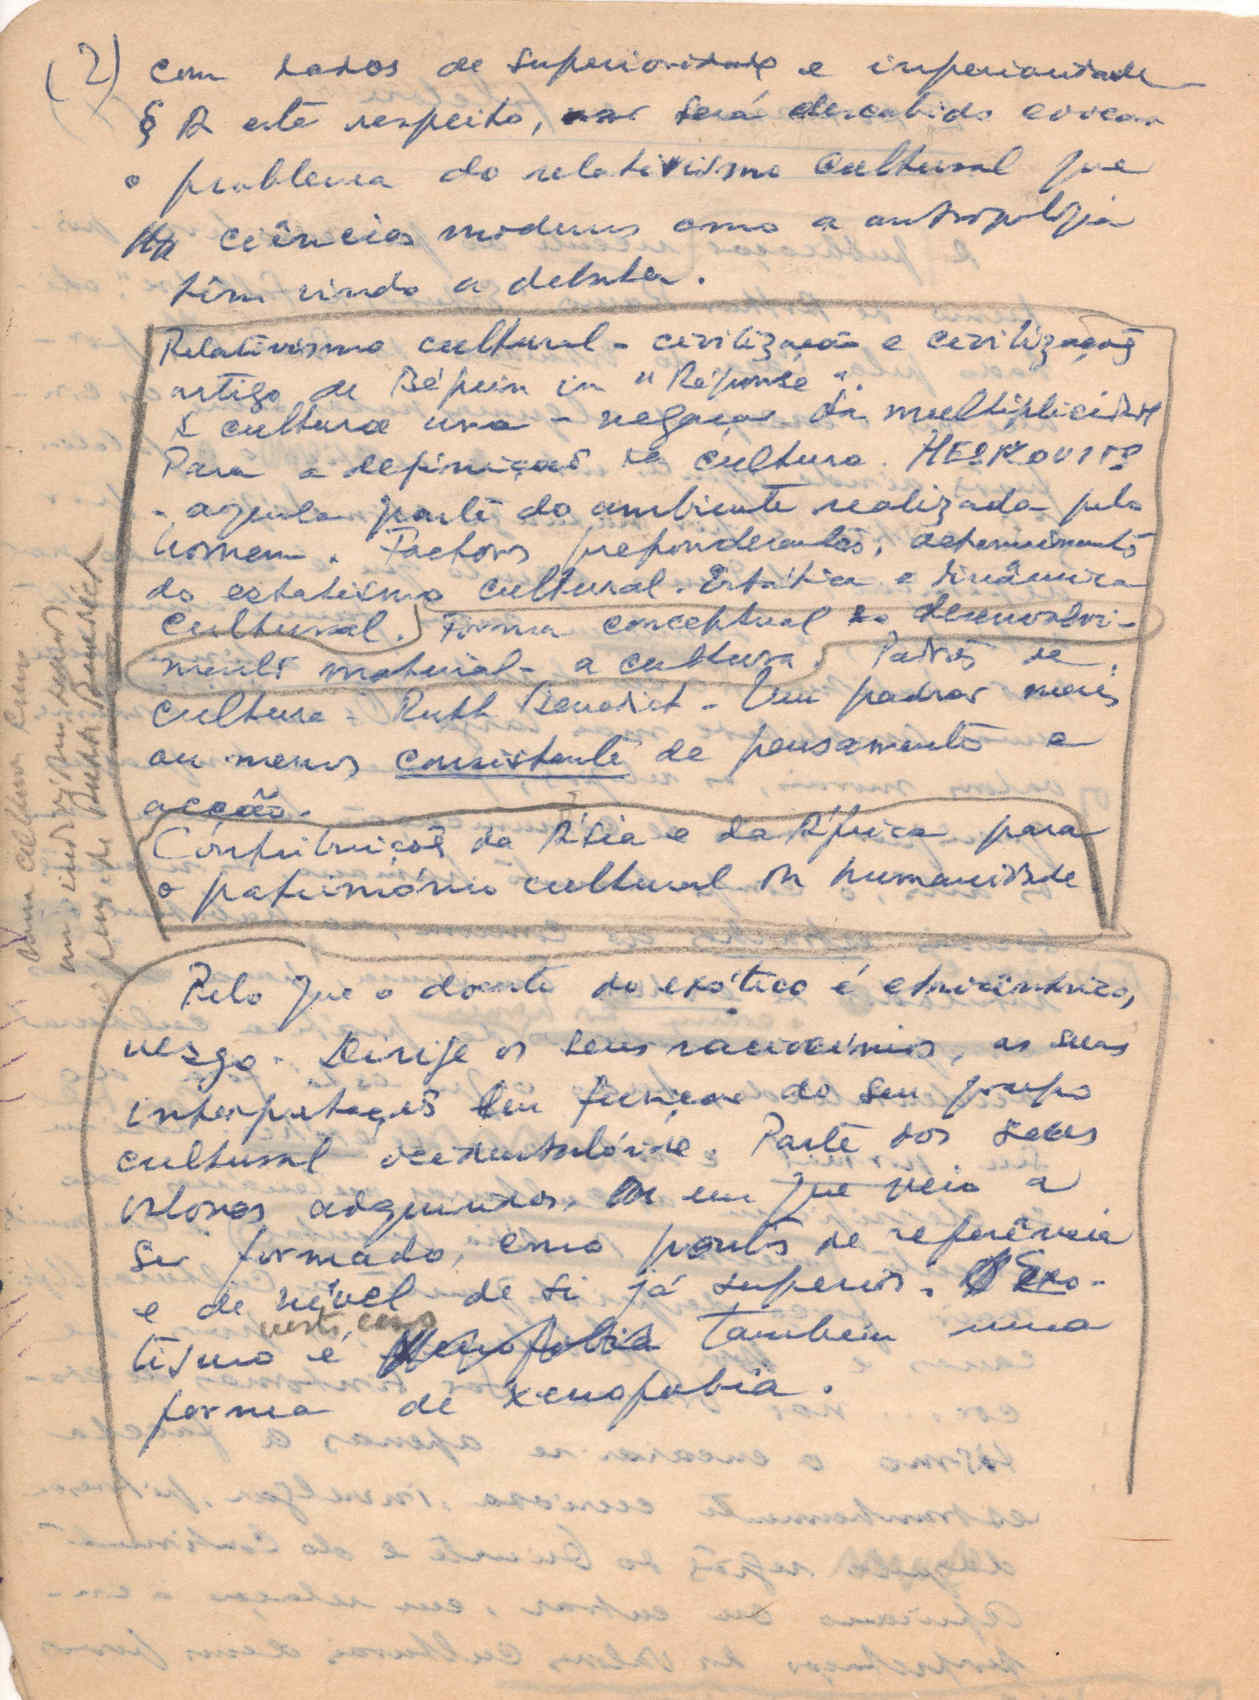 (2) com dados de superioridade e inferioridade
§ A este respeito, não será descabido evocar
o problema do relativismo cultural que
as ciências modernas como a antropologia
têm vindo a debater.
Relativismo cultural - civilização e civilizações
artigo de Béguin in "Réponse".
É cultura una - negação da multiplicidade
Para a definição de cultura. HERSKOVITS
- aquela parte do ambiente realizada pelo
homem. Factores preponderantes, determinantes
do estatismo cultural. Estática e dinâmica
cultural. Forma conceptual do desenvolvi-
mento material - a cultura. Padrões de
cultura - Ruth Benedict - Um padrão mais
ou menos consistente de pensamento e
acção.
Contribuições da Ásia e da África para
o património cultural da humanidade
Pelo que o doente do exótico é etnicêntrico,
vesgo. Dirige os seus raciocínios, as suas
interpretações em função do seu grupo
cultural ocidental. Parte dos seus
valores adquiridos, em que veio a
ser formado, como pontos de referência
e de nível de si já superior. O Exo-
tismo é, neste caso, também uma
forma de xenofobia.
uma cultura como
um indivíduo
Ruth Benedict